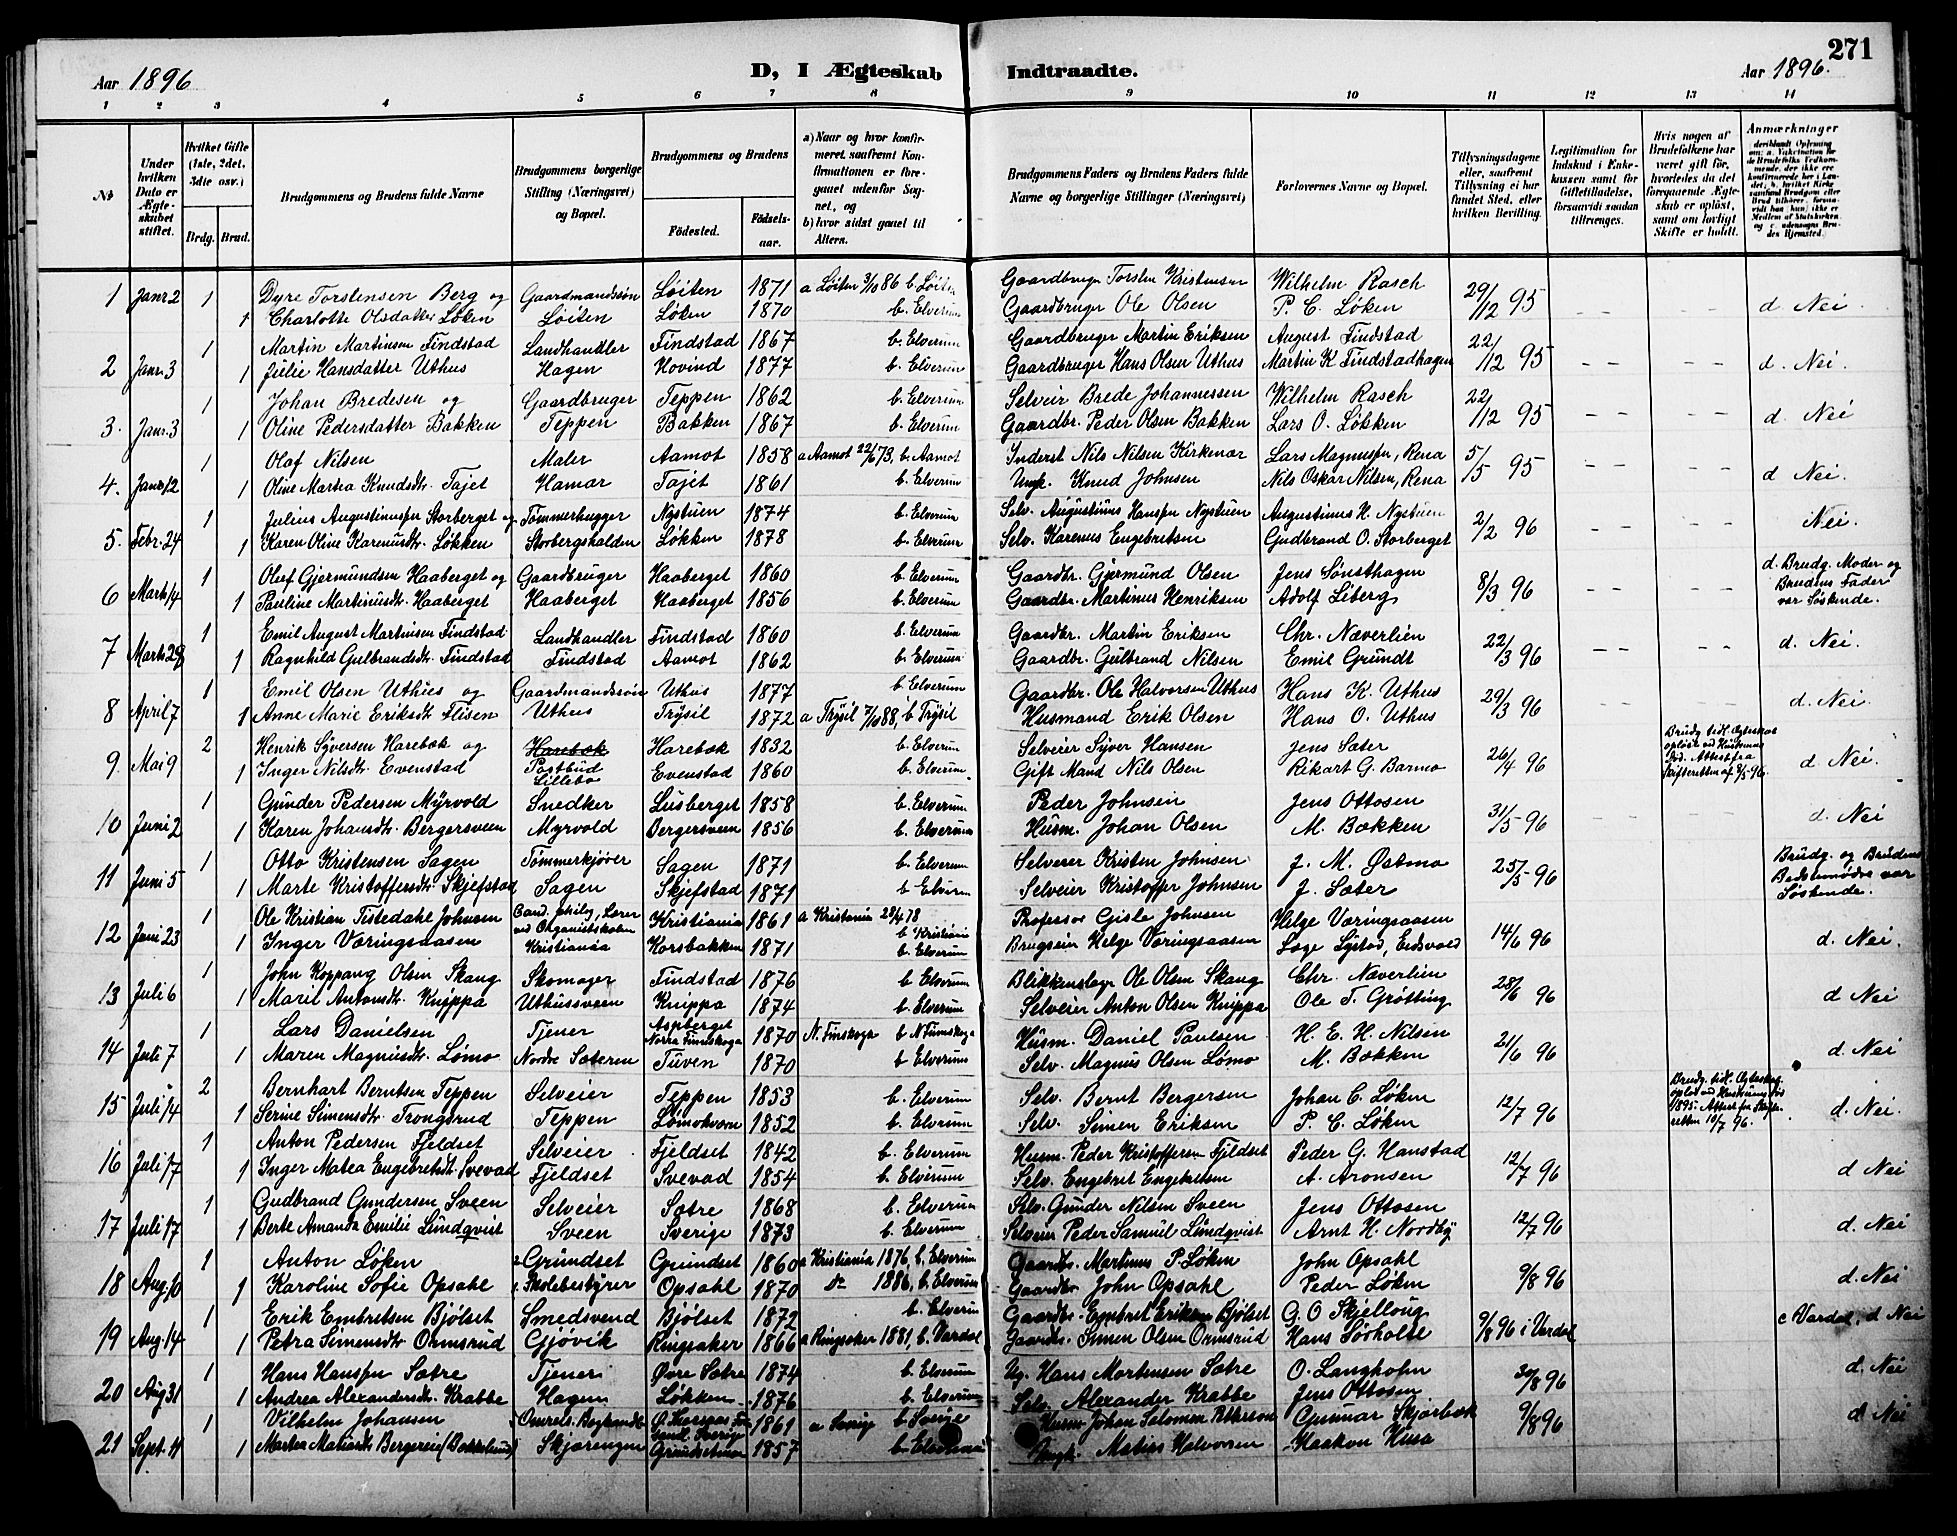 Aar 1896
D, I Ægteskab
1 2 3 4 5 6 7 8
No
Under hvilken Dato er Ægteskabet stiftet.
Hvilket Gifte (1ste, 2det, 3die osv.)
Brdg. Brud.
Brudgommens og Brudens fulde Navne
Brudgommens borgerlige Stilling (Næringsvei) og Bopæl.
Brudgommens og Brudens
Fødested. Fødselsaar.
a) Naar og hvor konfirmeret, saafremt Konfirmationen er foregaaet udenfor Sognet, og
b) hvor sidst gaaet til Alters.
1 Janr. 2 1 Dyre Torstensen Berg og Gaardmandssøn Løiten 1871 a Løiten 3/10 86 b Løiten
1 Charlotte Olsdatter Løken Løiten Løken 1870 b. Elverum
1 Martin Martinsen Findstad Landhandler Findstad 1867 b. Elverum
2 Janr. 3 1 Julie Hansdatter Uthus Hagen Hovind 1877 b. Elverum
1 Johan Bredesen og Gaardbruger Teppen 1862 b. Elverum
3. Janr. 3 1 Oline Pedersdatter Bakken Teppen Bakken 1867 b. Elverum
1 Olaf Nilsen Maler Aamot 1858 a Aamot 22/6 73, b. Aamot
4. Janr. 12 1 Oline Martea Knudsdtr. Tajet Hamar Tajet 1861 b. Elverum
1 Julius Augustinussen Storberget og Tømmerhugger Nystuen 1874 b. Elverum
5. Febr. 24 1 Karen Oline Karenusdtr. Løkken Storbergshalden Løkken 1878 b. Elverum
1 Oluf Gjermundsen Haaberget og Gaardbruger Haaberget 1860 b. Elverum
6 Marts 14 1 Pauline Martinusdtr. Haaberget Haaberget Haaberget 1856 b. Elverum
1 Emil August Martinsen Findstad Landhandler Findstad 1860 b. Elverum
7 Marts 29 1 Ragnhild Gulbrandsdtr. Findstad Findstad Aamot 1862 b. Elverum
1 Emil Olsen Uthus og Gaardmandssøn Uthus 1877 b. Elverum
8 April 7 1 Anne Marie Eriksdtr. Flisen Uthus Trysil 1872 a Trysil 7/10 88, b Trysil
2 Henrik Syversen Harebæk og Harebæk Harebæk 1832 b. Elverum
9. Mai 9 1 Inger Nilsdtr. Evenstad Postbud Lillebo Evenstad 1860 b. Elverum
1 Gunder Pedersen Myrvold Snedker Lusberget 1858 b. Elverum
10 Juni 2 1 Karen Johansdtr. Bergersveen Myrvold Bergersveen 1856 b. Elverum
1 Otto Kristensen Sagen Tømmerkjører Sagen 1871 b. Elverum
11 Juni 5 1 Marte Kristoffersdtr. Skjefstad Sagen Skjefstad 1871 b Elverum
1 Ole Kristian Tistedahl Johnsen Cand. philog, Lærer ved Organistskolen Kristiania 1861 a Kristiania 28/4 78 b Kristiania
12 Juni 23 1 Inger Væringsaasen Kristiania Korsbakken 1871 b Elverum
1 John Koppang Olsen Skang Skomager Findstad 1876 b Elverum
13 Juli 6 1 Maril Antonsdtr. Knippa Uthussveen Knippa 1874 b. Elverum
1 Lars Danielsen Tjener Aspberget Norra Finnskoga 1870 N. Finskoga b N Finnskoga
14 Juli 7 1 Maren Magnusdtr. Lømo Nordre Sæteren Tuven 1870 b Elverum
2 Bernhart Berntsen Teppen Selveier Teppen 1853 b. Elverum
15 Juli 14 1 Serine Simensdtr. Trongsrud Teppen Lømokværn 1852 b. Elverum
1 Anton Pedersen Fjeldset Selveier Fjeldset 1842 b. Elverum
16 Juli 17 1 Inger Matea Engebretsdtr. Svevad Fjeldset Svevad 1854 b. Elverum
1 Gudbrand Gundersen Sveen Selveier Sætre 1868 b. Elverum
17 Juli 17 1 Berte Amanda Emilie Lundqvist Sveen Sverige 1873 b. Elverum
1 Anton Løken Grundset Grundset 1860 a Kristiania 1876, b. Elverum
18 Aug. 10 1 Karoline Sofie Opsahl Skolebestyrer Opsahl 1870 do 1886, b. Elverum
1 Erik Embretsen Bjølset Smedsvend Bjölset 1872 b. Elverum
19 Aug. 14 1 Petra Simensdtr Ormsrud Gjøvik Ringsaker 1866 a Ringsaker 1881, b. Vardal
1 Hans Hanssen Sætre Tjener Øvre Sætre 1874 b. Elverum
20 Aug 31 1 Andrea Alexandersdtr. Krabbe Hagen Løkken 1876 b. Elverum
1 Vilhelm Johansen 1861 a Sverige b Sverige
21 Sept. 4 1 Martea Matiasdtr. Bergereie Skjærengen 1857 b. Elverum
271
Indtraadte.
Aar 1896.
9 10 11 12 13 14
Brudgommens Faders og Brudens Faders fulde Navne og borgerlige Stillinger (Næringsvei)
Forlovernes Navne og Bopæl.
Tillysningsdagene eller, saafremt Tillysning ei har fundet Sted, efter hvilken Bevilling.
Legitimation for Indskud i Enkekassen samt for Giftetilladelse, forsaavidt saadan tiltrænges.
Hvis nogen af Brudefolkene har været gift før, hvorledes da det foregaaende Ægteskab er opløst, samt om lovligt Skifte er holdt.
Anmærkninger
deriblandt Oplysning om: a. Vakcination for de Brudefolks Vedkommende, der ikke ere konfirmerede her i Landet; b. hvilket Kirkesamfund Brudgom eller Brud tilhører, forsaavidt han (hun) ikke er Medlem af Statskirken, og c. udensogns Brudes Hjemsted.
Gaardbruger Torsten Kristensen Wilhelm Rasch
Gaardbruger Ole Olsen P. C. Løken 29/12 95 d. Nei.
Gaardbruger Martin Eriksen August Findstad
Gaardbruger Hans Olsen Uthus Martin K Findstadhagen 22/12 95 d. Nei.
Selveir Brede Johannessen Wilhelm Rasch
Gaardbr. Peder Olsen Bakken Lars O. Løkken 22/12 95 d. Nei
Inderst Nils Nilsen Kirkenær Lars Magnussen, Rena
Ungk. Knud Johnsen Nils Oskar Nilsen, Rena 5/5 95 d Nei.
Selv. Augustinus Hanssen Nystuen Augustinus H. Nystuen
Selv. Karenus Engebretsen Gudbrand O. Storberget 2/2 96 Nei.
Gaardbr. Gjermund Olsen Jens Sønsthagen
Gaardbr. Martinus Henriksen Adolf Liberg 8/3 96 d. Brudg. Moder og Brudens Fader var Søskende.
Gaardbr. Martin Eriksen Chr. Næverlien
Gaardbr. Gulbrand Nilsen Emil Grundt 22/3 96 d. Nei.
Gaardbr. Ole Halvorsen Uthus Hans K. Uthus
Husmand Erik Olsen Hans O. Uthus 29/3 96 d. Nei.
Selveier Syver Hansen Jens Sæter
Gift Mand Nils Olsen Rikart G. Barmo 26/4 96 Brudg. tidl. Ægteskab opløst ved Hustruens Død. Attest fra Skifteretten af 8/5 96. d Nei.
Peder Johnsen Jens Ottosen
Husm. Johan Olsen M. Bækken 31/5 96 d. Nei
Selveier Kristen Johnsen J. M. Østmo
Selveier Kristoffer Johnsen J. Sæter 25/5 96 Brudg. og Brudens Bedstemødre var Søskende.
Professor Gisle Johnsen Helge Væringsaasen
Brugseier Helge Væringsaasen Læge Lystad, Eidsvold 14/6 96 d. Nei.
Blikkenslager Ole Olsen Skang Chr. Næverlien
Selveier Anton Olsen Knippa Ole T. Grøtting 28/6 96 d Nei
Husm. Daniel Paulsen H. E. H. Nilsen
Selv. Magnus Olsen Lømo M. Bækken 21/6 96 d. Nei
Selv. Bernt Bergersen Johan C. Løken
Selv. Simen Eriksen P. C. Løken 12/7 96 Brudg. tidl. Ægteskab opløst ved Hustruens Død 1895. Attest fra Skifteretten 10/7 96. d. Nei.
Husm. Peder Kristoffersen Fjeldset Peder G. Hanstad
Selv. Engebret Engebretsen A. Aronsen 12/7 96 d Nei
Selv. Gunder Nilsen Sveen Jens Ottosen
Selveier Peder Samuel Lundqvist Arnt H. Nordby 12/7 96 d. Nei
Gaardbr. Martinus P. Løken John Opsahl
Gaardbr John Opsahl Peder Løken 9/8 96 d. Nei
Gaardbr. Embret Eriksen Bjølset G. O Skjelloug
Gaardbr. Simen Olsen Ormsrud Hans Sørholte 9/8 96 i Vardal c Vardal, d Nei
Ug. Hans Mortensen Sætre O. Langholm
Selv. Alexander Krabbe Jens Ottosen 30/8 96 d. Nei
Husm Johan Salomon Petterson Gunnar Skjærbæk
Ungk. Matias Halvorsen Haakon Husa 9/8 96 d Nei